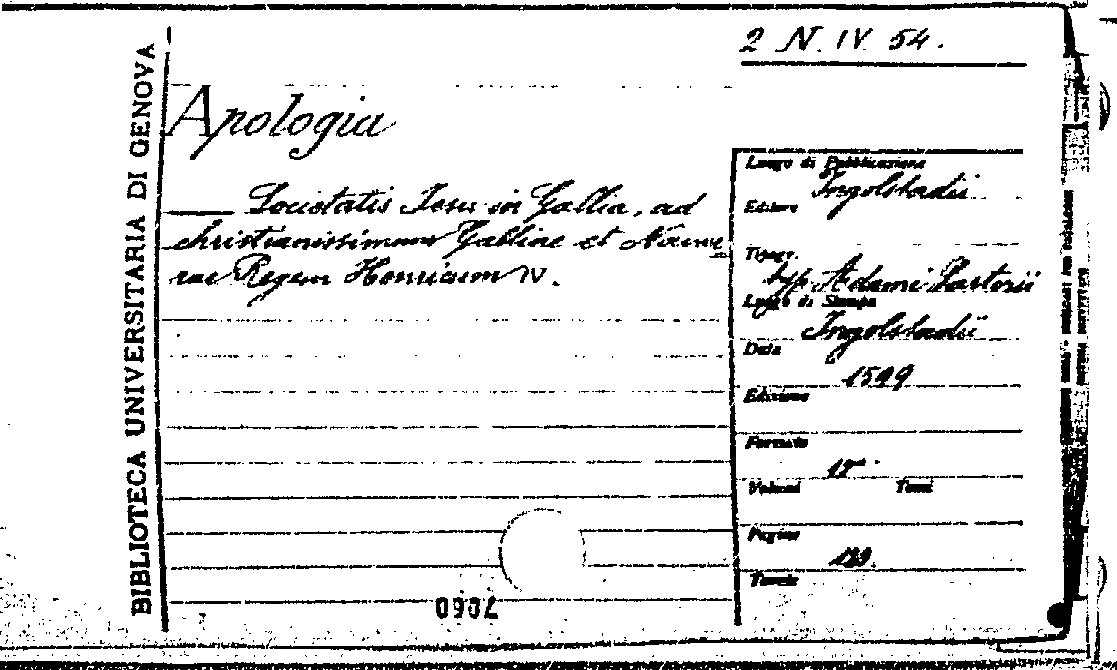 2 N. IV. 54.
BIBLIOTECA UNIVERSITARIA DI GENOVA
Apologia
Societatis Iesu in Gallia, ad
christianissimum Galliae et Navar
rae Regem Henricum IV.
Luogo di Pubblicazione
Ingolstadii
Editore
Tipogr.
typ. Adami Sartorii
Luogo di Stampa
Ingolstadii
Data
1599
Edizione
Formato
Volumi Tomi
Pagine
Tavole
7060